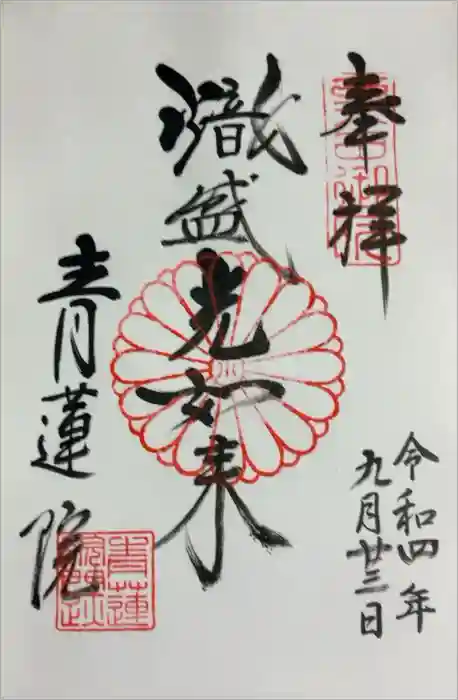 奉拝
令和四年
九月廿三日
熾盛光如来
青蓮院